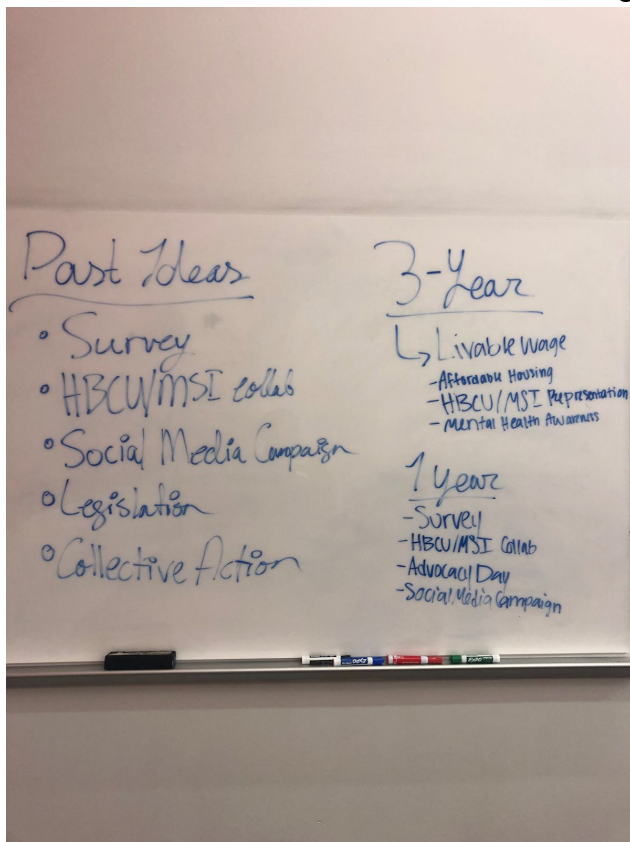 Past Ideas
• Survey
• HBCU/MSI collab
• Social Media Campaign
• Legislation
• Collective Action
3-Year
↳ Livable wage
- Affordable Housing
- HBCU/MSI Representation
- Mental Health Awareness
1 year
- Survey
- HBCU/MSI Collab
- Advocacy Day
- Social Media Campaign
EXPO
EXPO